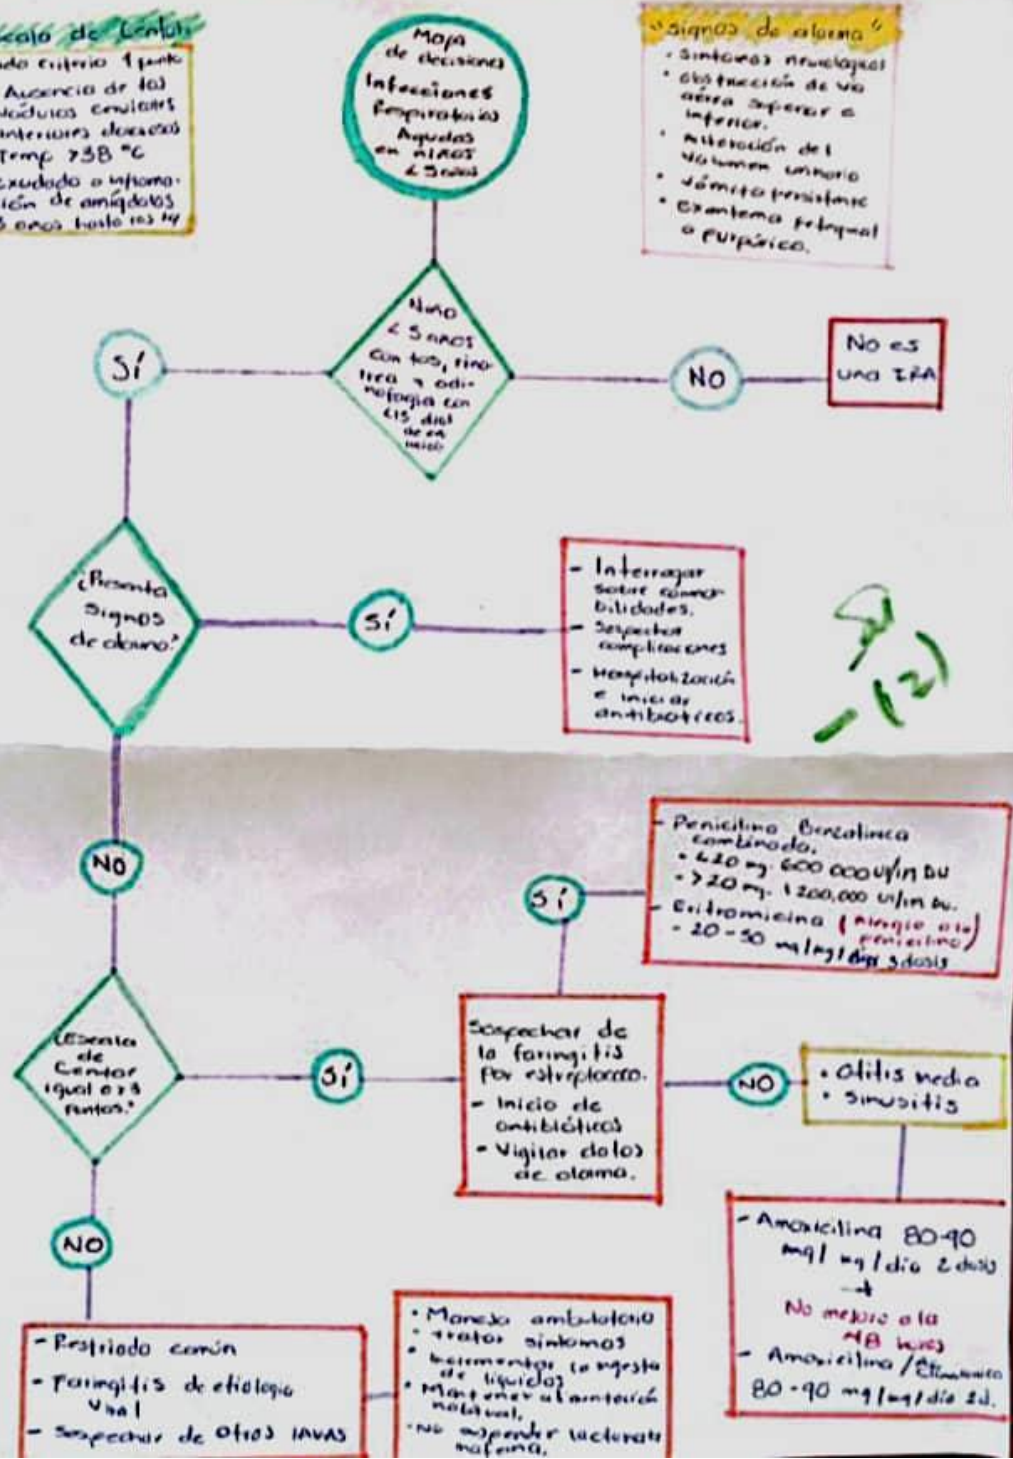 cala de Centor
ada criterio 1 punto
Ausencia de tos
Nódulos
anteriores dolorosos
Temp >38 °C
Exudado o inflama-
ción de amígdalas
3 años hasta los 14
Mapa
de decisiones
Infecciones
Respiratorias
Agudas
en niños
< 5 años
"Signos de alarma"
• Síntomas neurológicos
• Obstrucción de vía
aérea superior e
inferior.
• Alteración del
volumen urinario
• Vómito persistente
• Exantema petequial
o purpúrico.
Niño
< 5 años
con tos, rino-
rrea y odi-
nofagia con
<15 días
de
inicio
Sí
NO
No es
una IRA
¿Presenta
signos
de alarma?
Sí
- Interrogar
sobre comor
bilidades.
- Sospechar
complicaciones
- Hospitalización
e iniciar
antibióticos.
-(2)
NO
- Penicilina Benzatínica
combinada.
- <20 mg. 600 000 UI/IM DU
- >20 mg. 1 200,000 UI/IM DU.
- Eritromicina (Alergia a la
penicilina)
- 20-50 mg/kg/ 3 dosis
Sí
¿Escala
de
Centor
igual o >3
puntos?
Sí
Sospechar de
la faringitis
por estreptococo.
- Inicio de
antibióticos
- Vigilar datos
de alarma.
NO
• Otitis media
• Sinusitis
- Amoxicilina 80-90
mg/ kg/día 2 dosis
→
No mejoro a la
48 horas
- Amoxicilina /
80-90 mg/kg/día 2d.
NO
- Resfriado común
- Faringitis de etiología
viral
- Sospechar de otros IAVAS
• Manejo ambulatorio
• Tratar síntomas
• Incrementar la ingesta
de líquidos
• Mantener alimentación
natural.
• No suspender lactancia
materna.